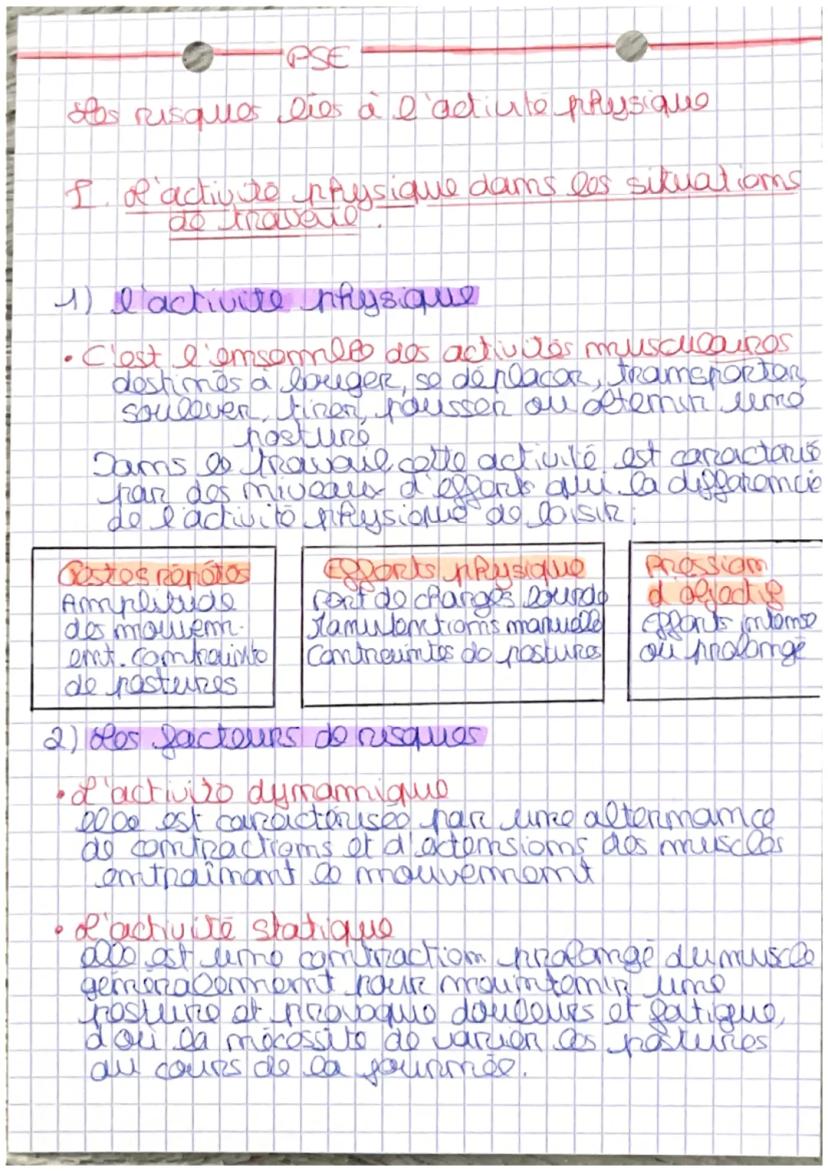 PSE
Les risques liés à l'activité physique
I. L'activité physique dans les situations
de travail.
1) l'activité physique
• C'est l'ensemble des activités musculaires
destinés à bouger, se déplacer, transporter,
soulever, tirer, pousser ou détenir une
posture
Dans le travail, cette activité est caractérisé
par des niveaux d'efforts qui la différencie
de l'activité physique de loisir:
Gestes répétés
Amplitude
des mouvem-
ent. contrainte
de postures
Efforts physique
port de charges lourde
Manutentions manuelle
Contraintes de postures
Pression
d'objectif
Efforts intense
ou prolongé
2) Les facteurs de risques
• L'activité dynamique
elle est caractérisée par une alternance
de contractions et d'extensions des muscles
entraînant le mouvement
• L'activité statique
elle est une contraction prolongé du muscle
généralement pour maintenir une
posture et provoque douleurs et fatigue,
d'où la nécessité de varier les postures
au cours de la journée.